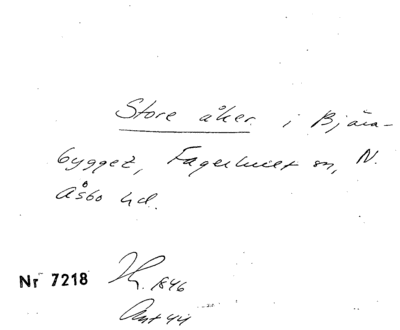 Store åker i Bjära-
bygget, Fagerhult sn, N.
Åsbo hd.
Nr 7218
1846